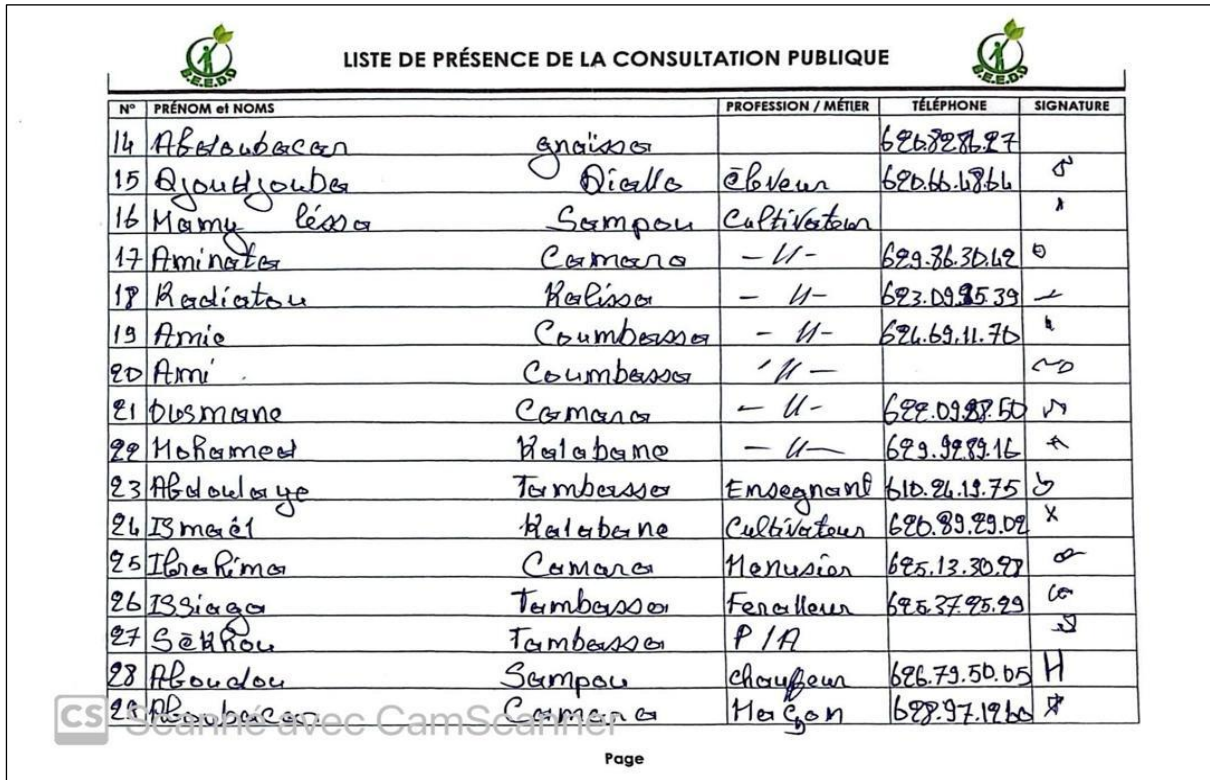 LISTE DE PRÉSENCE DE LA CONSULTATION PUBLIQUE
B.E.E.D.D B.E.E.D.D
N° PRÉNOM et NOMS PROFESSION / MÉTIER TÉLÉPHONE SIGNATURE
14 gnaïssa
15 Diallo éleveur 620.66.48.64
16 Mamy Sampou Cultivateur
17 Aminata Camara - 11 - 629.86.30.42
18 Kadiatou Kalissa - 11 - 
19 Amie Coumbassa - 11 - 624.69.11.70
20 Ami Coumbassa - 11 -
21 Ousmane Camara - 11 -
22 Mohamed Kalabane - 11 -
23 Abdoulaye Tambassa Ensegnant 610.24.19.75
24 Ismaël Kalabane Cultivateur 620.89.29.02
25 Ibrahima Camara Menusier
26 Issiaga Tambassa Feralleur 625.37.95.29
27 Sékhou Tambassa P/A
28 Aboudou Sampou chauffeur 626.79.50.05
29 Aboubacar Camara Maçon
CS Scanné avec CamScanner
Page